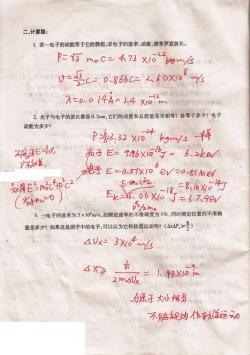 二.计算题:
1. 若一电子的动能等于它的静能,求电子的速率,动量,德布罗意波长。
P=√3 m₀C = 4.73 ×10⁻²² kgm/s
υ=√3/2 C = 0.866C = 2.60×10⁸ m/s
λ=0.014Å=1.4×10⁻¹² m
2. 光子与电子的波长都是0.2nm,它们的动量和总能量是否相等?各等于多少?电子
动能为多少?
P=3.32×10⁻²⁴ kgm/s 一样
光子 E=9.96×10⁻¹⁶ J = 6.2keV
电子 E=0.51×10⁶ eV=0.51MeV
3. 一电子的速率为3×10⁶m/s,如测定速率的不准确度为1%,同时测定位置的不准确
量是多少?如果这是原子中的电子,可以认为它作轨道运动吗?
ΔUx= 3×10⁴ m/s
Δx ≥ ħ/2mΔUx = 1.93×10⁻⁹ m
与原子大小相当
不能视为作轨道运动